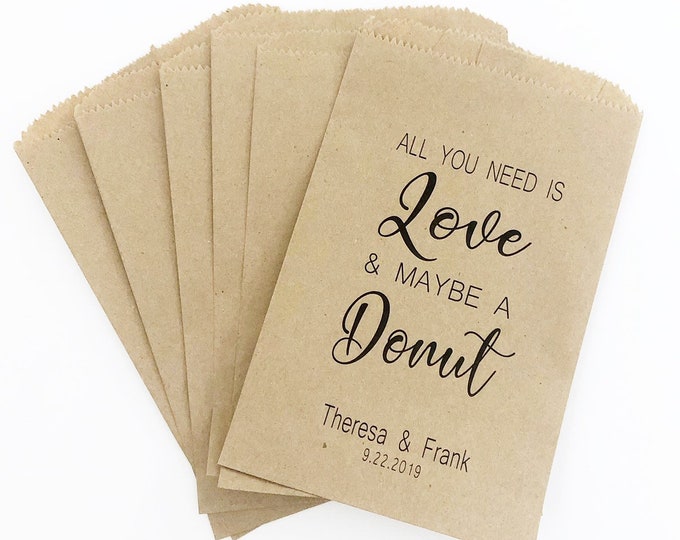 ALL YOU NEED IS
Love
& MAYBE A
Donut
Theresa & Frank
9.22.2019